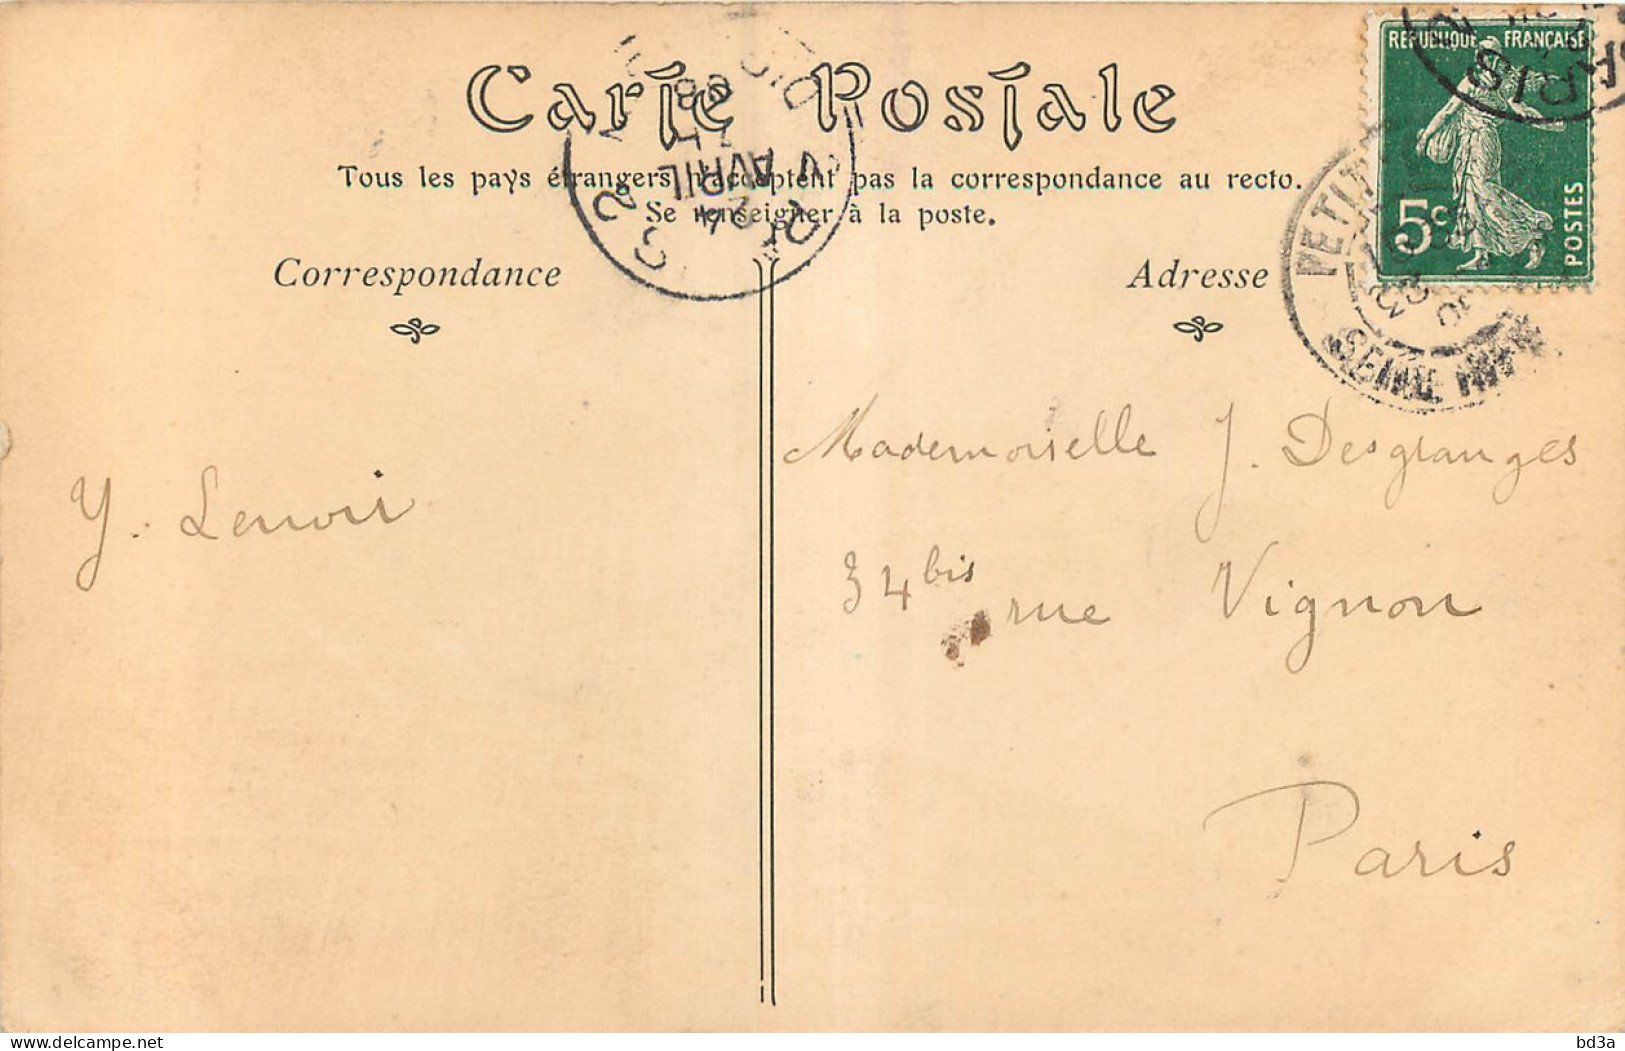 Carte Postale
Tous les pays étrangers n'acceptent pas la correspondance au recto.
Se renseigner à la poste.
Correspondance
Adresse
RÉPUBLIQUE FRANÇAISE
5c
POSTES
PARIS
AVRIL
PETIT
SEINE
Y. Lenoir
Mademoiselle J. Desgranges
34 bis rue Vignon
Paris
delcampe.net
bd3a